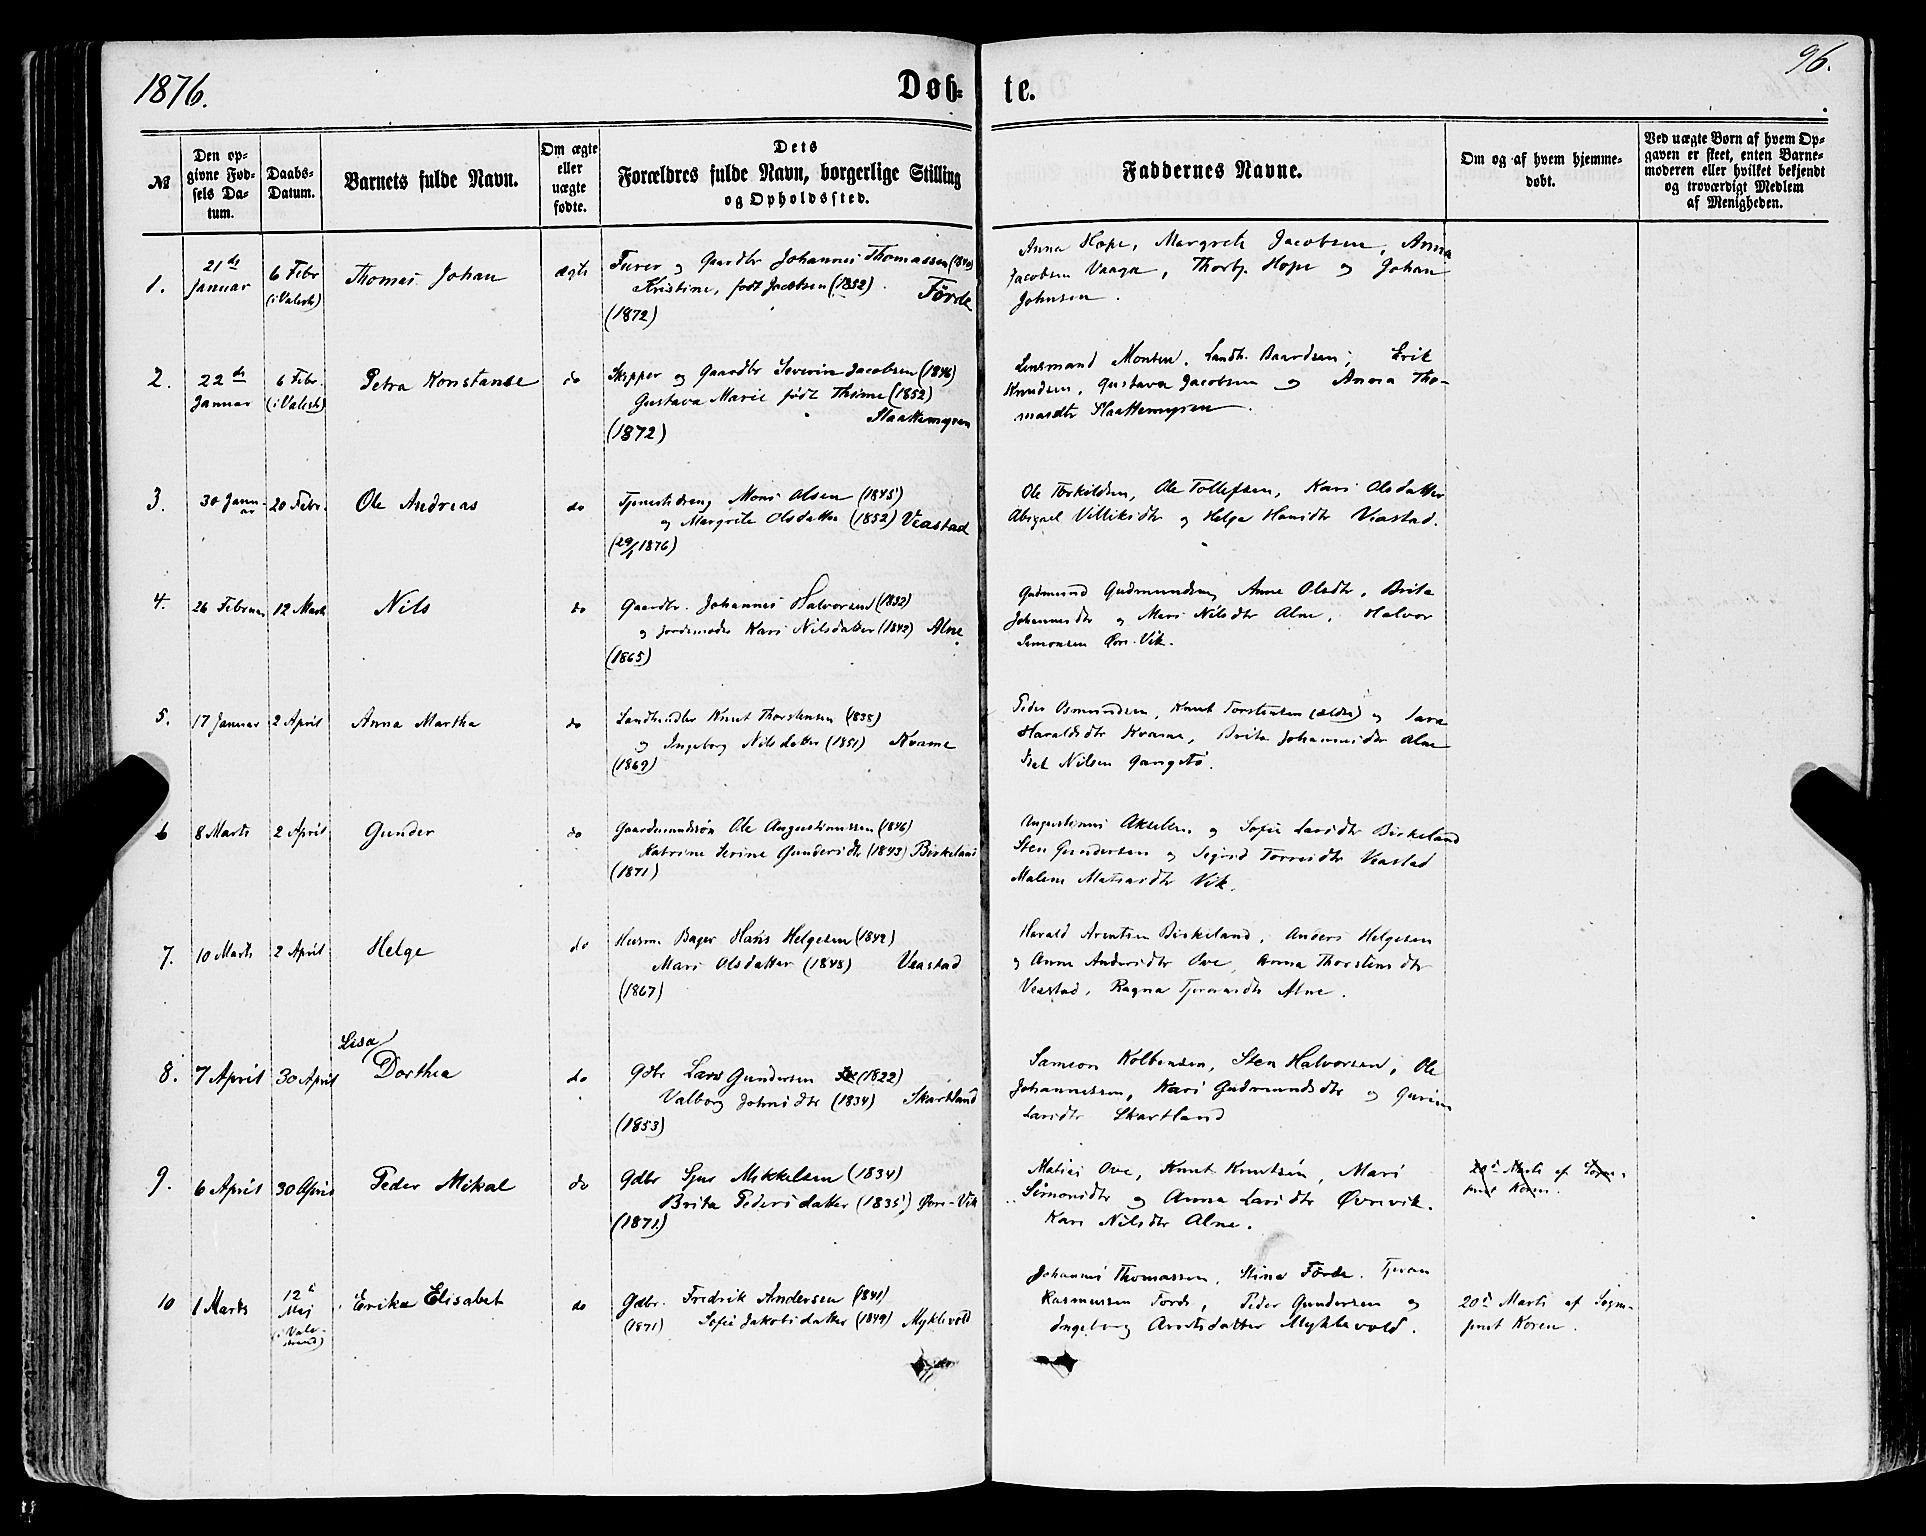 1876.
Døb-
te.
96.
№
Den op-
givne Fød-
sels Da-
tum.
Daabs-
Datum.
Barnets fulde Navn.
Om ægte
eller
uægte
fødte.
Dets
Forældres fulde Navn, borgerlige Stilling
og Opholdssted.
Faddernes Navne.
Om og af hvem hjemme-
døbt.
Ved uægte Børn af hvem Op-
gaven er skeet, enten Barne-
moderen eller hvilket bekjendt
og troværdigt Medlem
af Menigheden.
1.
21de
Januar
6 Febr
(i Valest)
Thomas Johan
ægte
Furer og Gaardbr Johannes Thomassen (1840)
Kristine, født Jacobsen (1852)
Förde
(1872)
Anna Hope, Margrete Jacobsen, Anna
Jacobsen Vaaga, Thorbj. Hope og Johan
Johnsen.
2.
22de
Januar
6 Febr.
(i Valest)
Petra Konstanse
do
Skipper og Gaardbr Severin Jacobsen (1846)
Gustava Marie født Thime (1852)
Slaattemyren
(1872)
Lensmand Monsen, Landh. Baardsen, Erik
Knudsen, Gustava Jacobsen og Anna Tho-
masdtr Slaattemyren.
3.
30 Janu-
ar
20 Febr.
Ole Andreas
do
Tjenestedreng Mons Olsen (1845)
og Margrete Olsdatter (1852) Veastad
(29/1 1876)
Ole Torkildsen, Ole Tollefsen, Kari Olsdatter
Abigael Villiksdtr og Helga Hansdtr Veastad.
4.
26 Februar
12 Marts
Nils
do
Gaardbr. Johannes Halvorsen (1832)
og Jordemoder Kari Nilsdatter (1842) Alne
(1865)
Gudmund Gudmundsen, Anne Olsdtr, Brita
Johannesdtr og Mari Nilsdtr Alne, Halvor
Simonsen Øvre-Vik.
5.
17 Januar
2 April
Anna Martha
do
Landhandler Knut Thorstensen (1835)
og Ingeborg Nilsdatter (1851) Kvame
(1869)
Peder Osmundsen, Knut Torstensen (ældre) og Sara
Haraldsdtr Kvame, Brita Johannesdtr Alne
Nilsen Gangstö.
6
8 Marts
2 April
Gunder
do
Gaardmandssøn Ole Augustinussen (1846)
Katrine Serine Gundersdtr (1843) Birkeland
(1871)
Augustinus Akselsen og Sofie Larsdtr Birkeland
Sten Gundersen og Sigrid Torresdtr Veastad
Malene Matsasdtr Vik.
7.
10 Marts
2 April
Helge
do
Husm. Bager Hans Helgesen (1842)
Mari Olsdatter (1848) Veastad
(1867)
Harald Arentsen Birkeland, Anders Helgesen
og Anne Andersdtr Ove, Anna Thorstensdtr
Veastad, Ragna Tjeransdtr Alne.
8.
7 April
30 April
Lisa
Dorthea
do
Gdbr Lars Gundersen (1822)
Valborg Johnsdtr (1834) Skartland
(1853)
Samson Kolbensen, Sten Halvorsen, Ole
Johannessen, Kari Gudmundsdtr og Gurine
Larsdtr Skartland
9.
6 April
30 April
Peder Mikal
do
Gdbr Sjur Mikkelsen (1834)
Brita Pedersdatter (1835) Øvre-Vik
(1871)
Matias Ove, Knut Knutsen, Mari
Simonsdtr og Anna Larsdtr Øvrevik.
Kari Nilsdtr Alne.
20de Marts af Sogne-
prest Koren.
10
1 Marts
12te
Mai
(i Vale-
strand)
Erika Elisabet
do
Gdbr. Fredrik Andersen (1841)
(1871) Sofie Jakobsdatter (1849) Myklevold
Johannes Thomassen, Stina Förde, Tjeran
Rasmussen Förde, Peder Gundersen og
Ingeborg Arentsdatter Myklevold.
20de Marts af Sogne-
prest Koren.